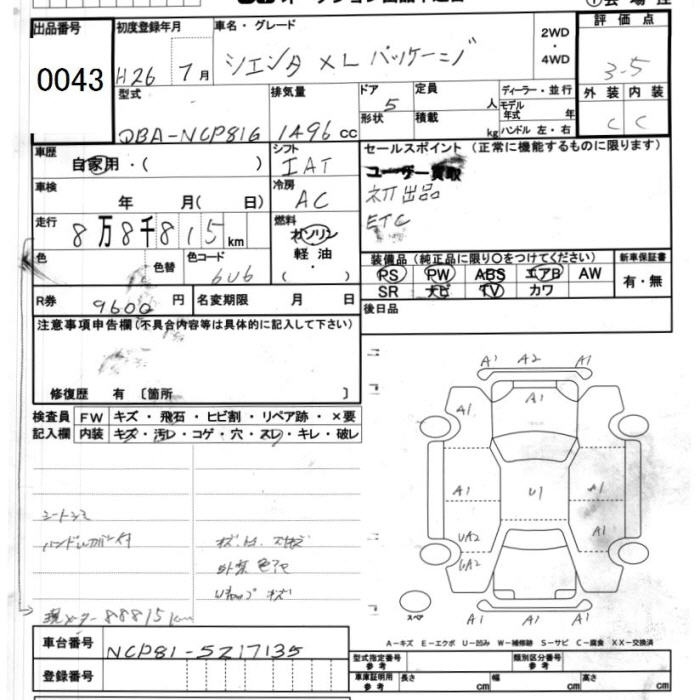 出品番号 0043
初度登録年月 H26 7月
車名・グレード シエンタ XL パッケージ
2WD・4WD
評価点 3-5
外装 内装
C C
型式 DBA-NCP81G
排気量 1496cc
ドア 5
形状
定員 人
積載 kg
ディーラー・並行
モデル年式 年
ハンドル 左・右
車歴 自家用・( )
シフト IAT
車検 年 月( 日)
冷房 AC
走行 8万8千815km
燃料 ガソリン 軽油 ( ・ )
色 色替 色コード 6U6
R券 9600円
名変期限 月 日
セールスポイント (正常に機能するものに限ります)
ユーザー買取
初出品
ETC
装備品 (純正品に限り○をつけてください)
PS PW ABS エアB AW
SR ナビ TV カワ
新車保証書
有・無
後日品
注意事項申告欄 (不具合内容等は具体的に記入して下さい)
修復歴 有 〔箇所 〕
検査員記入欄
FW キズ・飛石・ヒビ割・リペア跡・×要
内装 キズ・汚レ・コゲ・穴・スレ・キレ・破レ
シートシミ
ハンドルカバー付
現メーター88815km
A1 A2 A1
A1 A1 A1
A1 U1 A1
A1
UA2
UA2
A1 A1 A1
スペア
A-キズ E-エクボ U-凹み W-補修跡 S-サビ C-腐食 XX-交換済
車台番号 NCP81-5217135
登録番号
型式指定番号 参考
類別区分番号 参考
車庫証明用 参考 長さ cm 幅 cm 高さ cm